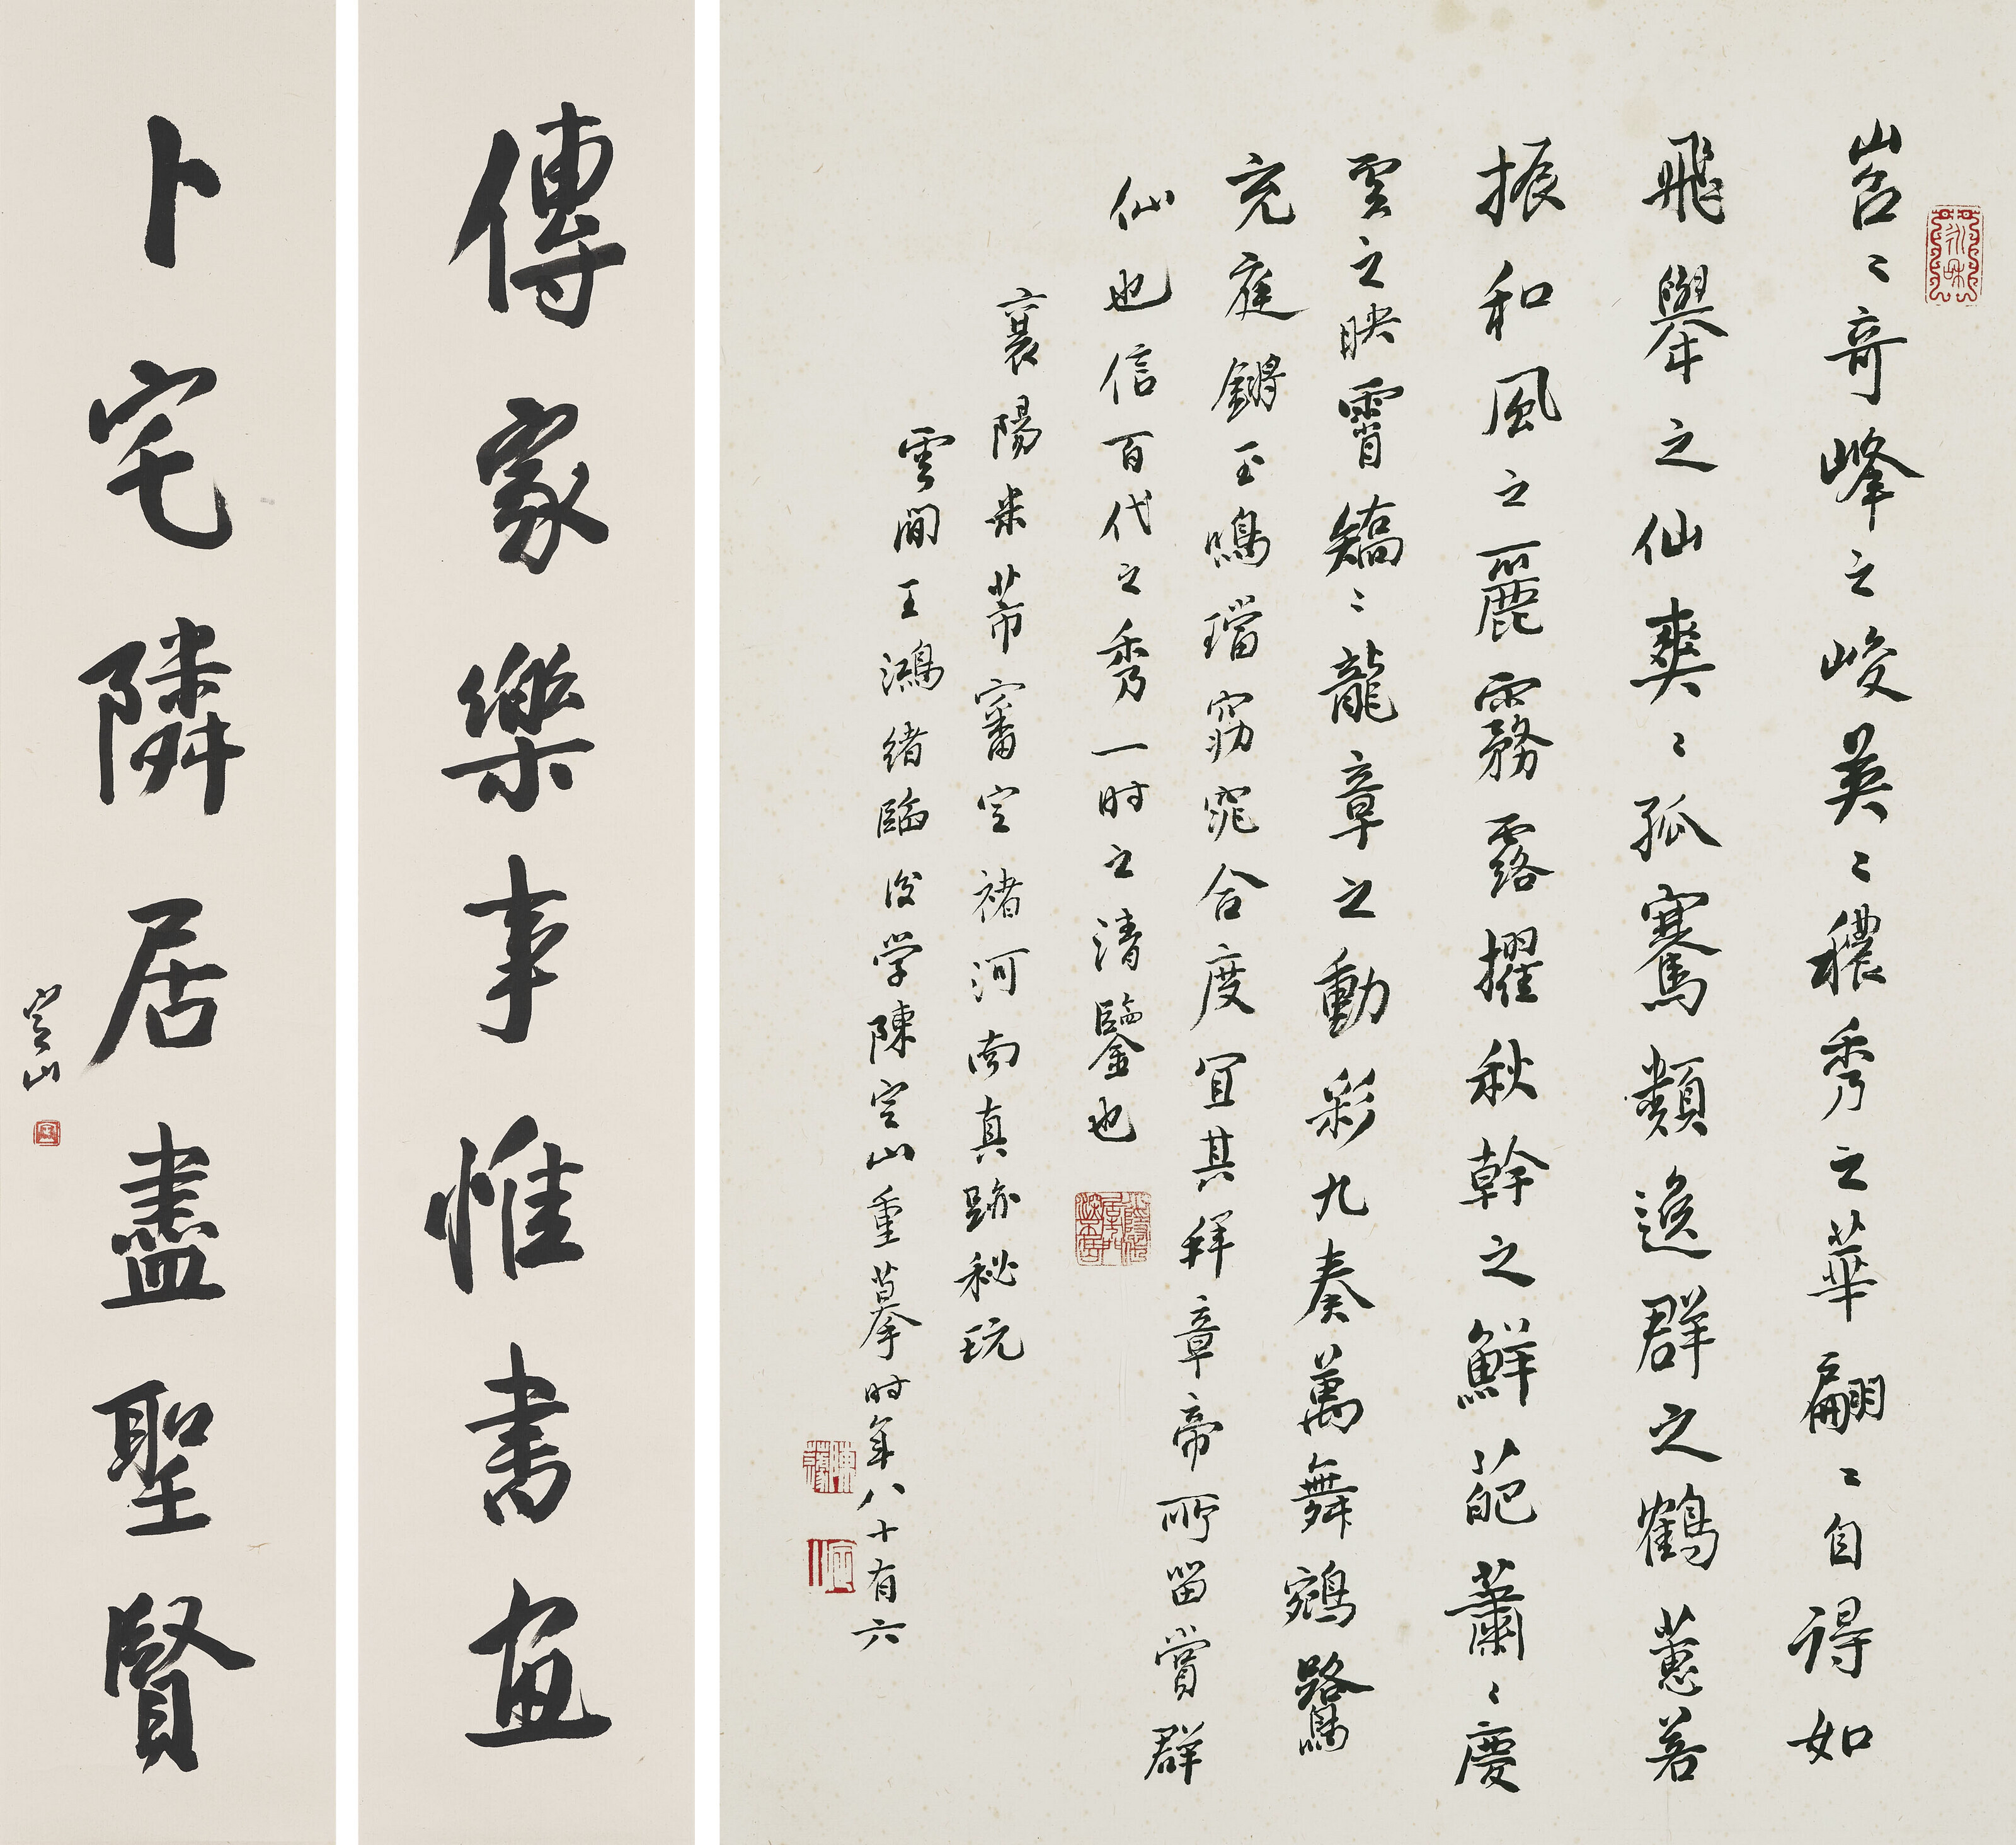 岧〻奇峰之峻英〻穠秀之華翩〻自得如
飛舉之仙爽〻孤騫類逸群之鶴蕙若
振和風之麗霧露擢秋幹之鮮葩蕭〻慶
雲之映霄矯〻龍章之動彩九奏萬舞鵷鷺
充庭鏘玉鳴璫窈窕合度宜其拜章帝所留賞群
仙也信百代之秀一时之清鑒也
襄陽米芾審定褚河南真跡秘玩
雲間王鴻緒臨後学陳定山重摹时年八十有六
傳家樂事惟書畫
卜宅隣居盡聖賢
定山